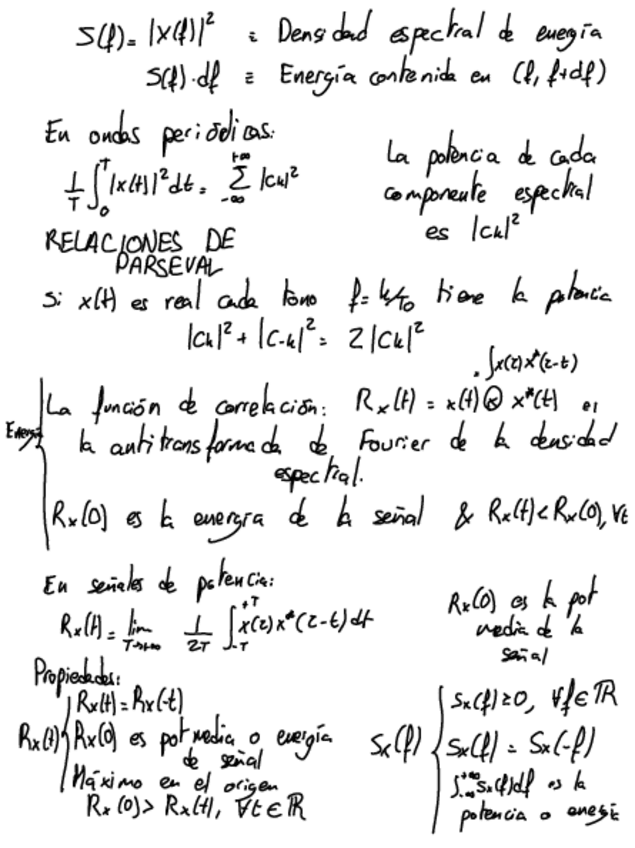 S(f) = |X(f)|² ≡ Densidad espectral de energía
S(f)·df ≡ Energía contenida en (f, f+df)
En ondas periódicas:
1/T ∫₀ᵀ |x(t)|² dt = Σ_{-∞}^{+∞} |Ck|²
La potencia de cada
componente espectral
es |Ck|²
RELACIONES DE
PARSEVAL
Si x(t) es real cada tono f = k/T₀ tiene la potencia
|Ck|² + |C-k|² = 2|Ck|²
= ∫x(τ)x*(τ-t)
Energía
La función de correlación: Rx(t) = x(t) ⊗ x*(t) es
la antitransformada de Fourier de la densidad
espectral.
Rx(0) es la energía de la señal & Rx(t) < Rx(0), ∀t
En señales de potencia:
Rx(t) = lim_{T→+∞} 1/2T ∫_{-T}^{+T} x(τ)x*(τ-t)dt
Rx(0) es la pot
media de la
señal
Propiedades:
Rx(t)
Rx(t) = Rx(-t)
Rx(0) es pot media o energía
de señal
Máximo en el origen
Rx(0) > Rx(t), ∀t ∈ ℝ
Sx(f)
Sx(f) ≥ 0, ∀f ∈ ℝ
Sx(f) = Sx(-f)
∫_{-∞}^{+∞} Sx(f)df es la
potencia o energía